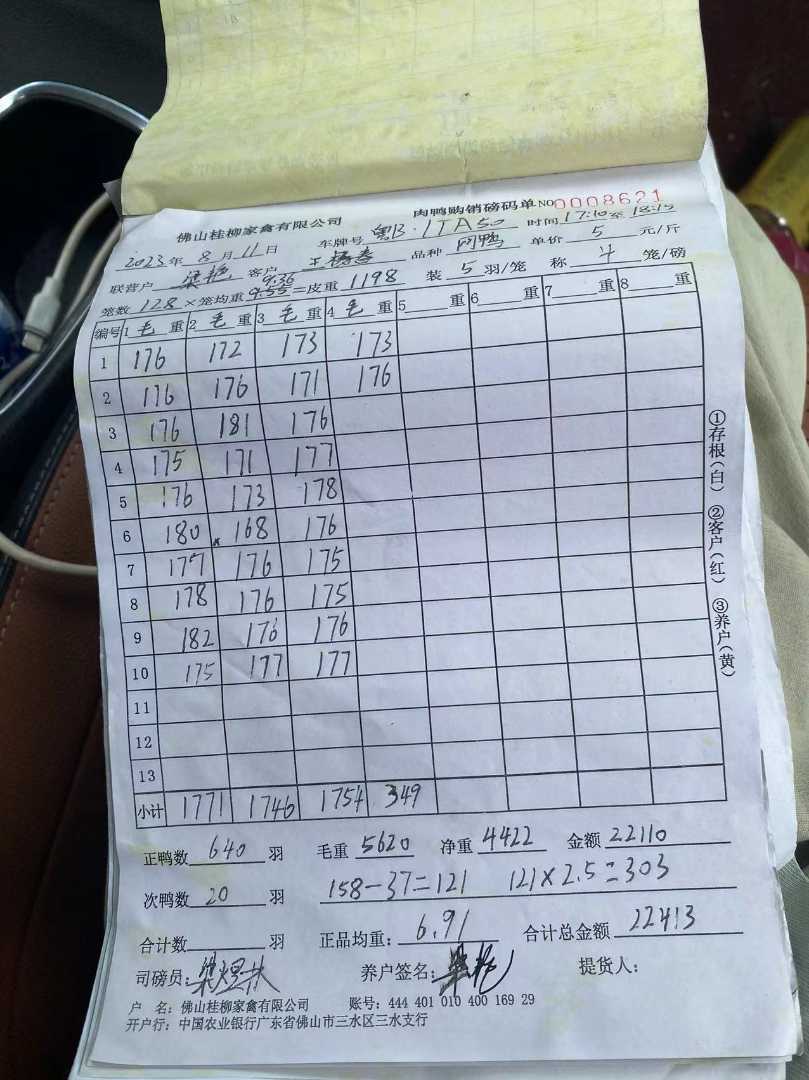 佛山桂柳家禽有限公司 肉鸭购销磅码单 NO 0008621
2023年 8月 11日 车牌号 粤B·1TA50 时间 17:10至 18:15
联营户 梁艳 客户 王杨春 品种 肉鸭 单价 5 元/斤
9.36
笼数 128 ×笼均重 9.55 =皮重 1198 装 5 羽/笼 称 4 笼/磅
编号 1 毛 重 2 毛 重 3 毛 重 4 毛 重 5 重 6 重 7 重 8 重
1 176 172 173 173
2 176 176 171 176
3 176 181 176
4 175 171 177
5 176 173 178
6 180 168 176
7 177 176 175
8 178 176 175
9 182 176 176
10 175 177 177
11
12
13
小计 1771 1746 1754 349
正鸭数 640 羽 毛重 5620 净重 4422 金额 22110
次鸭数 20 羽 158-37=121 121×2.5=303
合计数 羽 正品均重: 6.91 合计总金额 22413
司磅员: 养户签名: 梁艳 提货人:
户 名: 佛山桂柳家禽有限公司 账号: 444 401 010 400 169 29
开户行: 中国农业银行广东省佛山市三水区三水支行
①存根(白) ②客户(红) ③养户(黄)